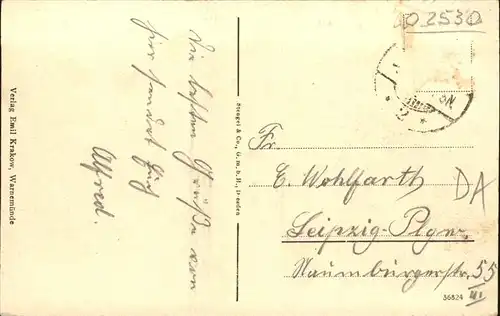 02530
Die besten Grüße von
hier sendet Euch
Alfred.
Verlag Emil Krakow, Warnemünde
Stengel & Co., G. m. b. H., Dresden
2
Fr.
E. Wohlfarth
DA
Leipzig-Plgw.
Naumburgerstr. 55
III
36824